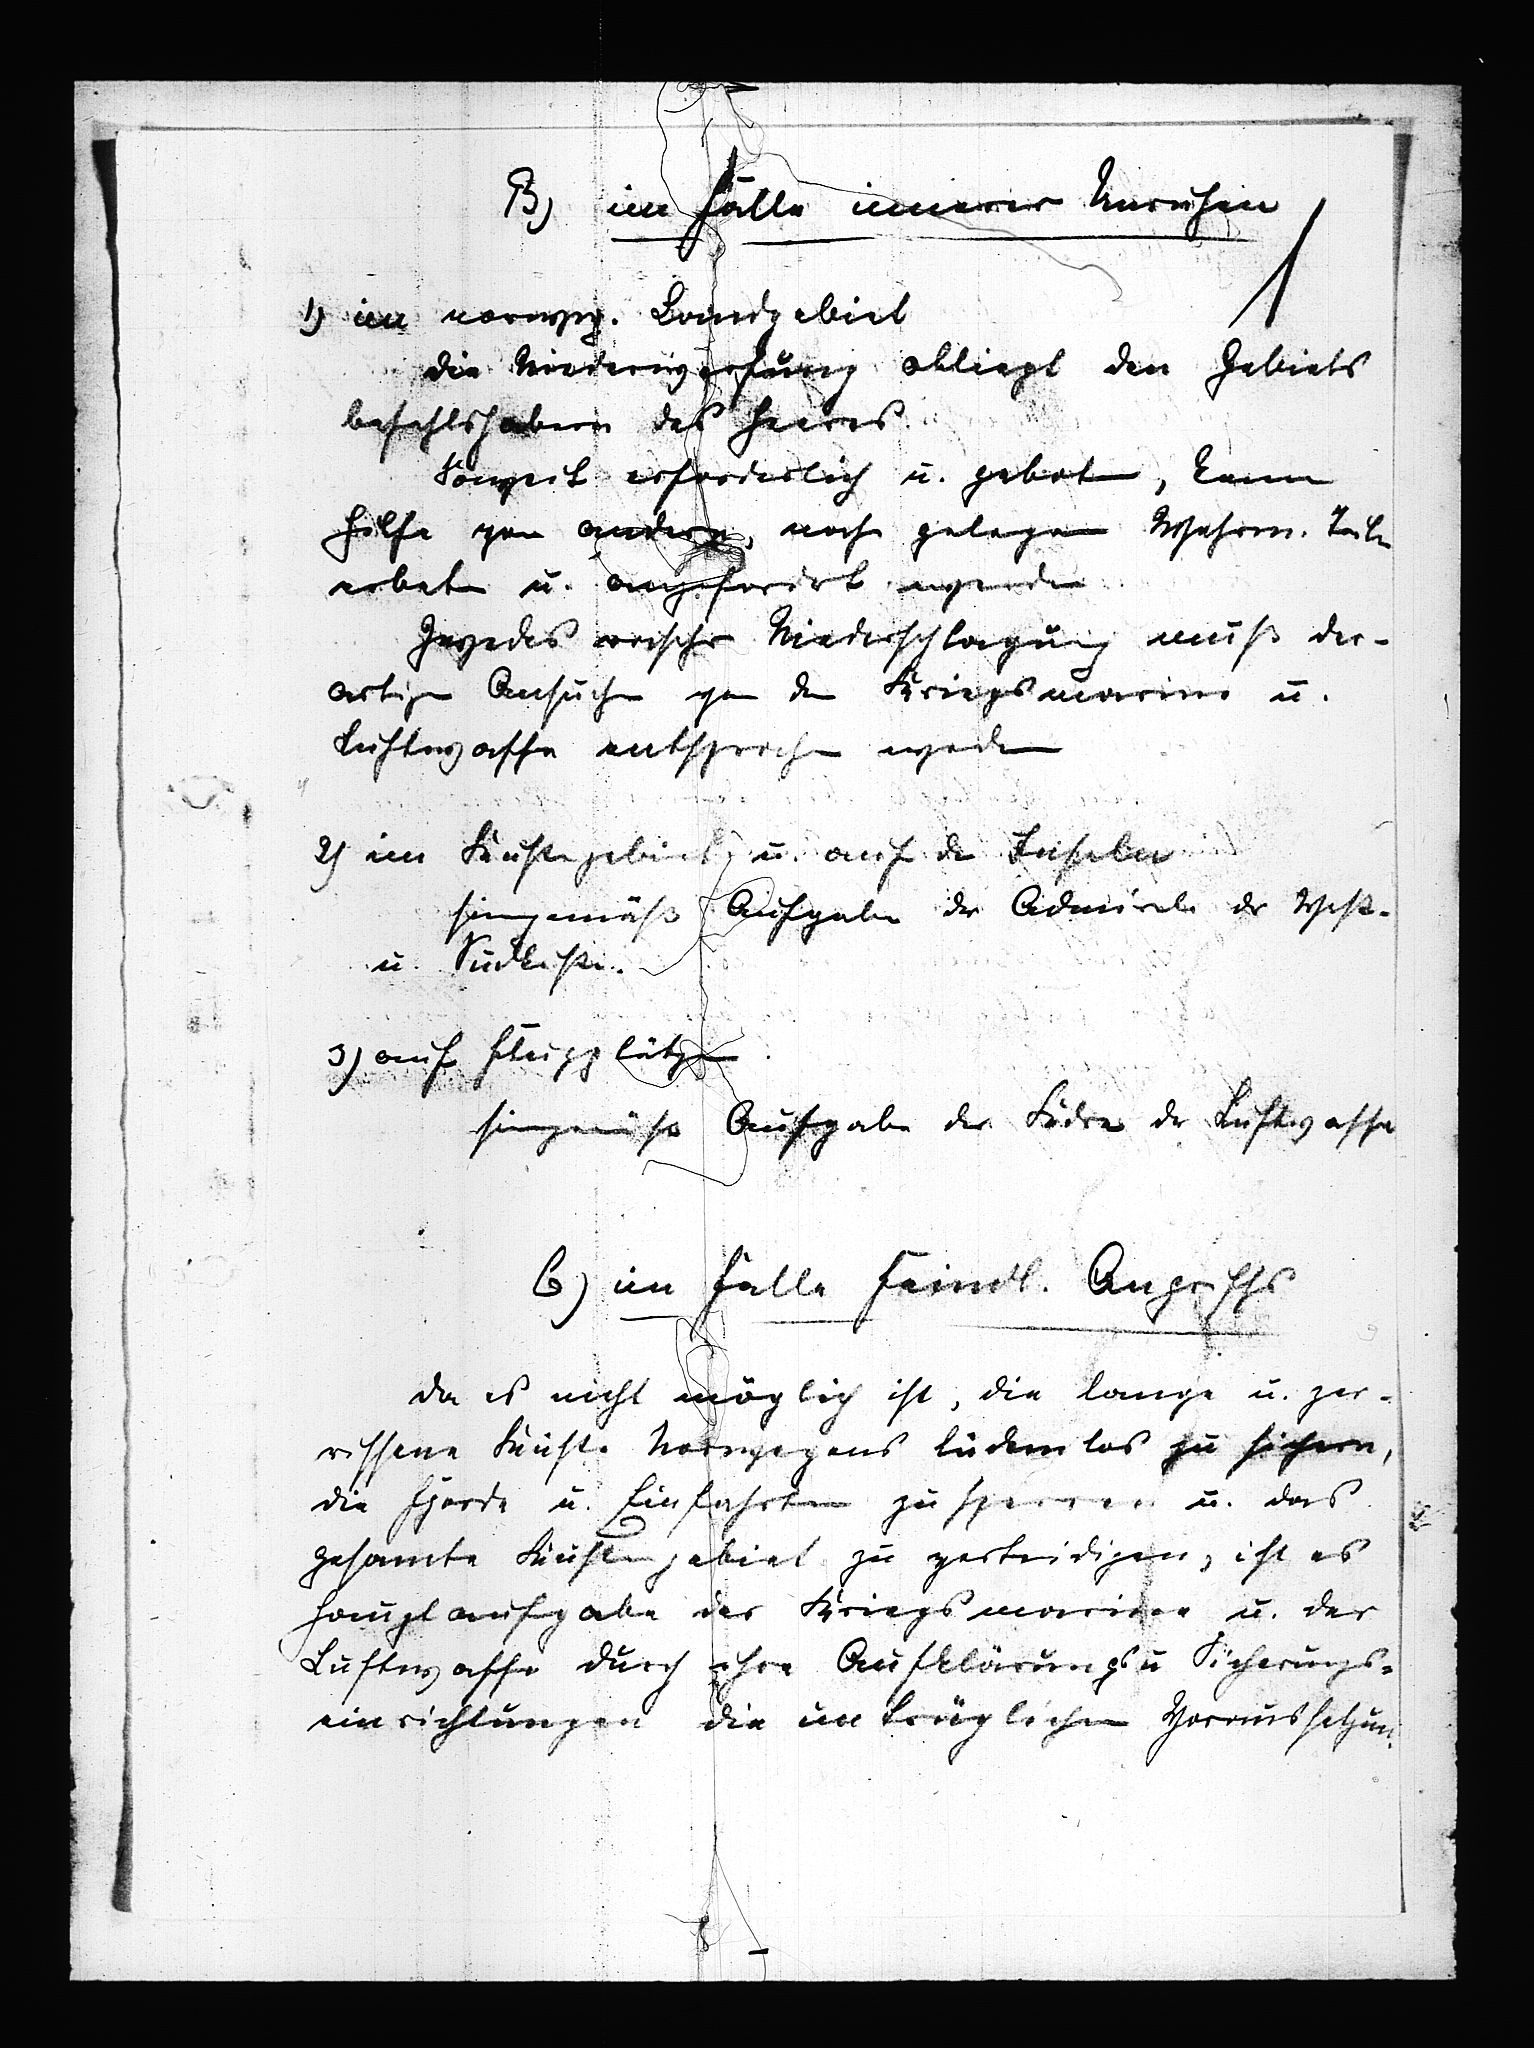 B) im Falle innerer Unruhen
1) im norweg. Landgebiet
die Niederwerfung obliegt den Gebiets
befehlshabern des Heeres.
Soweit erforderlich u. geboten, kann
Hilfe von andern, nach gelegenen Wehrm. Teilen
erbeten u. angefordert werden
Zwecks rascher Niederschlagung muß der-
artigen Ansuchen von der Kriegsmarine u.
Luftwaffe entsprochen werden
2) im Küstengebiet u. auf den Inseln
sinngemäß Aufgabe der Admirale der West-
u. Südküste.
3) auf Flugplätzen
sinngemäß Aufgabe der Führer der Luftwaffe
C) im Falle feindl. Angriffs
Da es nicht möglich ist, die lange u. zer-
rissene Küste Norwegens lückenlos zu sichern,
die Fjorde u. Einfahrten zu sperren u. das
gesamte Küstengebiet zu verteidigen, ist es
Hauptaufgabe der Kriegsmarine u. der
Luftwaffe durch ihre Aufklärungs u Sicherungs-
einrichtungen die untrüglichen Voraussetzun.